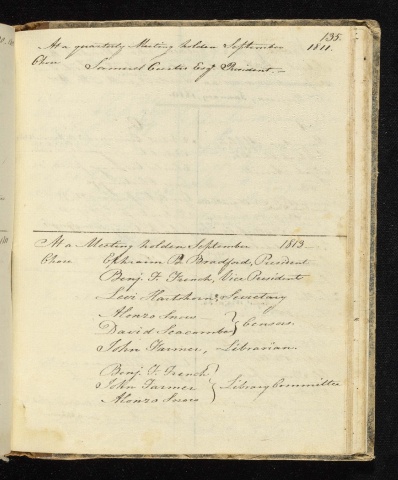 135.
At a quarterly Meeting holden September 1811.
Chose Samuel Curtis Esq. President.—
At a Meeting holden September 1813—
Chose Ephraim P. Bradford, President
Benj. F. French, Vice President
Levi Hartshorn, Secretary
Alonzo Snow
David Seacombe } Censors.
John Farmer, Librarian.
Benj. F. French
John Farmer } Library Committee
Alonzo Snow